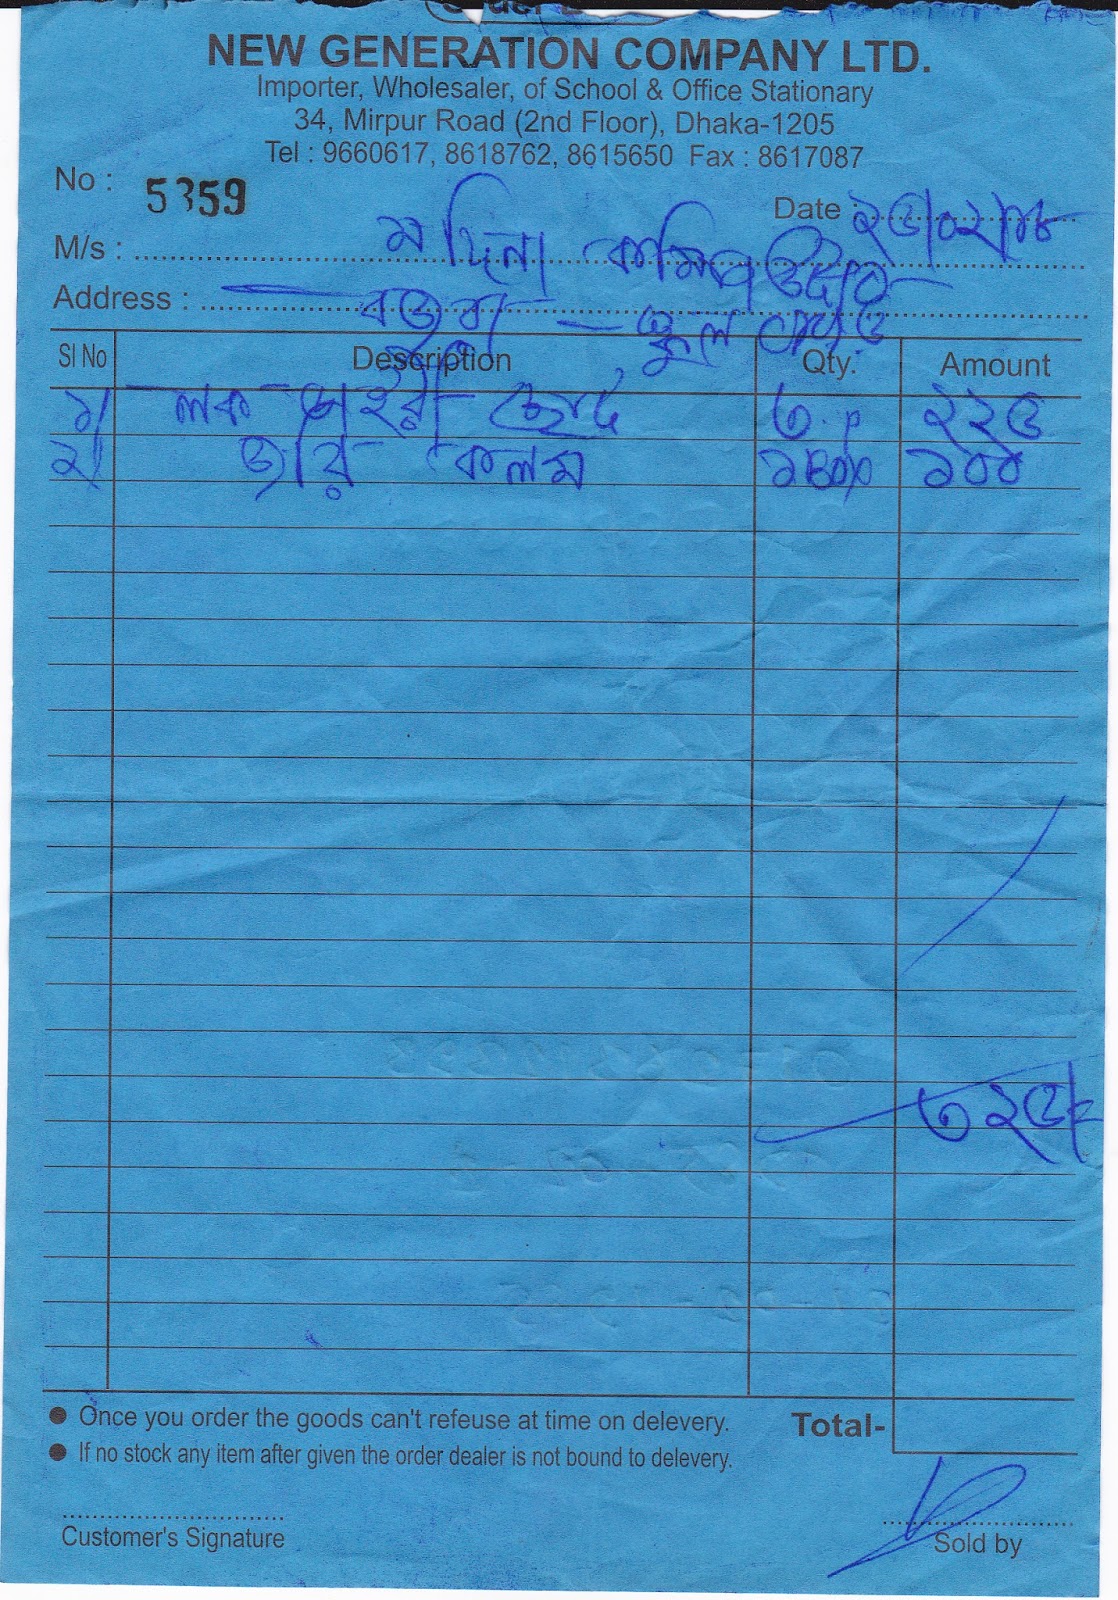 NEW GENERATION COMPANY LTD.
Importer, Wholesaler, of School & Office Stationary
34, Mirpur Road (2nd Floor), Dhaka-1205
Tel : 9660617, 8618762, 8615650 Fax : 8617087
No : 5359
Date : ২৬/০২/১৮
M/s : মদিনা
Address :
Sl No Description Qty. Amount
১/ ৩ P ২২৫
২/ কলম ১ Box ১০০
৩২৫/=
● Once you order the goods can't refeuse at time on delevery.
Total-
● If no stock any item after given the order dealer is not bound to delevery.
Customer's Signature
Sold by